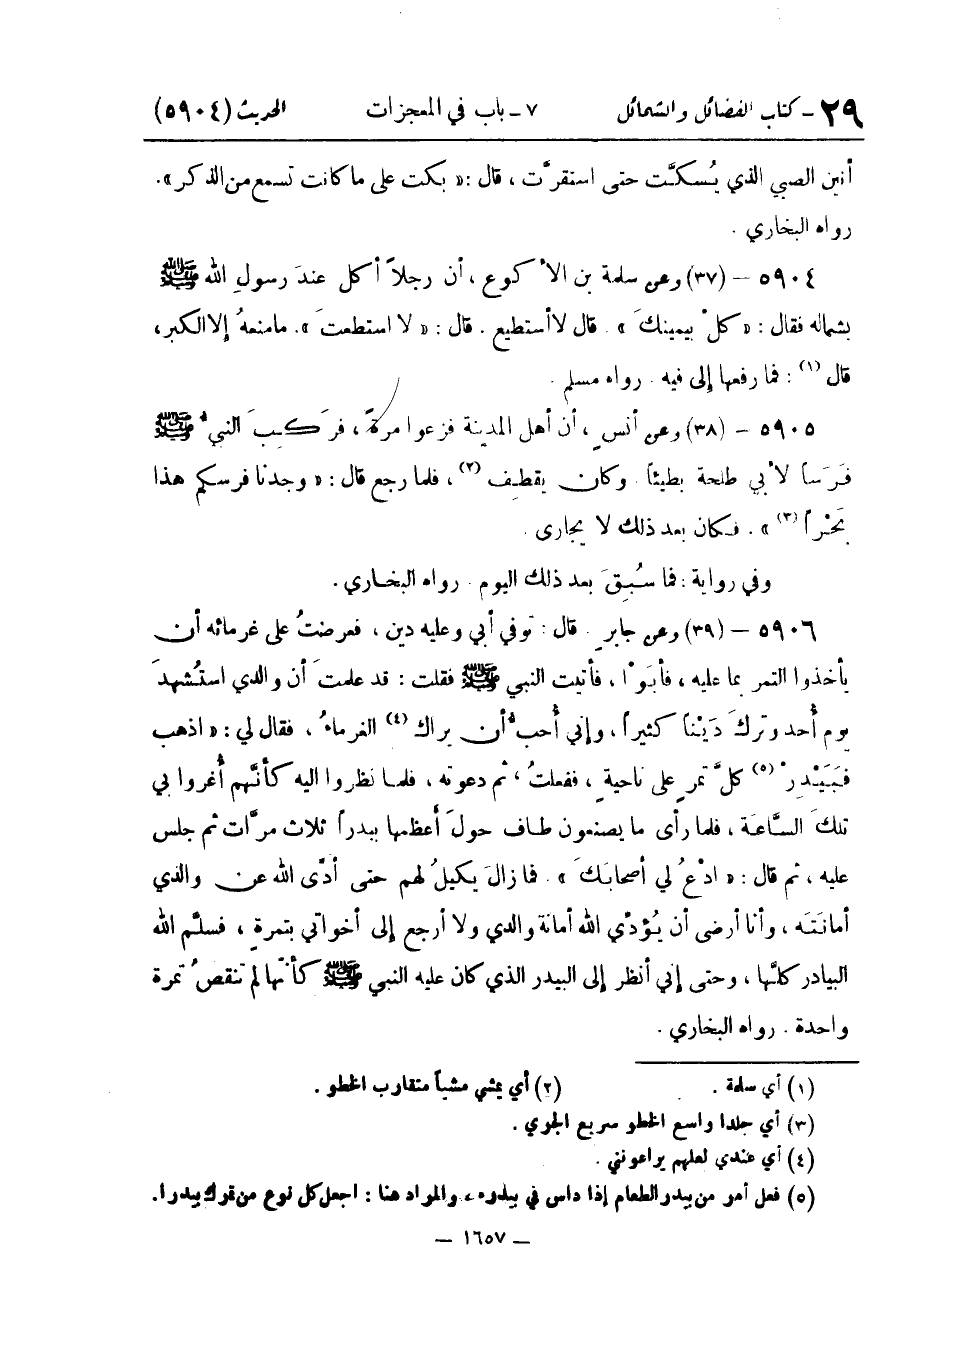 ٢٩ ـ كتاب الفضائل والشمائل ٧ ـ باب في المعجزات الحديث (٥٩٠٤)
أنين الصبي الذي يُسكَّت حتى استقرَّت ، قال : « بكت على ما كانت تسمع من الذكر » .
رواه البخاري .
٥٩٠٤ ـ (٣٧) وعن سلمة بن الأكوع ، أن رجلاً أكل عندَ رسولِ الله ﷺ
بشماله فقال : « كلْ بيمينكَ » . قال لا أستطيع . قال : « لا استطعتَ » . ما منعهُ إلا الكبر ،
قال (١) : فما رفعها إلى فيه . رواه مسلم .
٥٩٠٥ ـ (٣٨) وعن أنسٍ ، أن أهل المدينة فزعوا مرةً ، فرَكِبَ النبيُّ ﷺ
فَرَساً لأبي طلحة بطيئاً وكان يقطِف (٢) ، فلما رجع قال : « وجدنا فرسكم هذا
بَحْراً (٣) » . فكان بعد ذلك لا يجارى .
وفي رواية : فما سُبِقَ بعد ذلك اليوم . رواه البخاري .
٥٩٠٦ ـ (٣٩) وعن جابرٍ . قال : توفي أبي وعليه دين ، فعرضتُ على غرمائه أن
يأخذوا التمر بما عليه ، فأبَوْا ، فأتيت النبي ﷺ فقلت : قد علمتَ أن والدي استُشهدَ
يوم أُحد وتركَ دَيْناً كثيراً ، وإني أُحبُّ أن يراك (٤) الغرماءُ ، فقال لي : « اذهب
فَبَيْدِرْ (٥) كلَّ تمرٍ على ناحيةٍ ، ففعلتُ ، ثم دعوته ، فلما نظروا اليه كأنَّهم أُغروا بي
تلكَ السَّاعَة ، فلما رأى ما يصنعون طاف حولَ أعظمها بيدراً ثلاث مرَّات ثم جلس
عليه ، ثم قال : « ادْعُ لي أصحابَكَ » . فما زالَ يكيلُ لهم حتى أدَّى الله عن والدي
أمانَتَه ، وأنا أرضى أن يُؤدِّي الله أمانة والدي ولا أرجع إلى أخواتي بتمرةٍ ، فسلَّم الله
البيادر كلَّها ، وحتى إني أنظر إلى البيدر الذي كان عليه النبي ﷺ كأنَّها لم تنقصُ تمرة
واحدة . رواه البخاري .
(١) أي سلمة . (٢) أي يمشي مشياً متقارب الخطو .
(٣) أي جلدا واسع الخطو سريع الجري .
(٤) أي عندي لعلهم يراعونني .
(٥) فعل أمر من بيدر الطعام إذا داس في بيدره ، والمراد هنا : اجعل كل نوع من تمرك بيدرا .
ـ ١٦٥٧ ـ